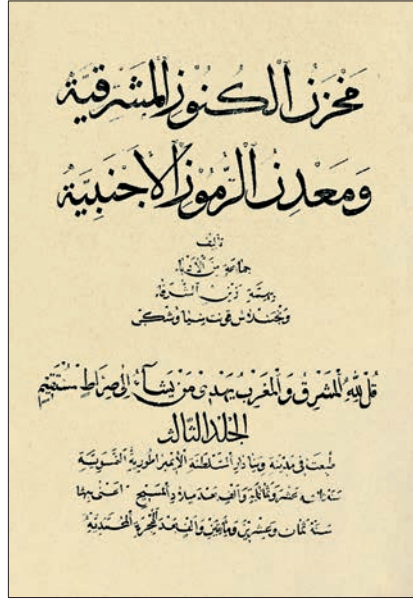 مَخْزَنُ ٱلْكُنُوزِ ٱلْمَشْرِقِيَّة
وَمَعْدِنُ ٱلرُّمُوزِ ٱلْأَجْنَبِيَّة
تأليف
جماعة من الأذكياء
وينجنلاس
قُل لِلّٰهِ ٱلْمَشْرِقُ وَٱلْمَغْرِبُ يَهْدِى مَنْ يَشَآءُ إِلَى صِرَاطٍ مُسْتَقِيم
الجلد الثالث
طبعت فى مدينة ويانا دار السلطنة الإمبراطورية النمسوية
سنة عشر وثمانمائة وألف عند ميلاد المسيح أعنى بها
سنة ثمان وعشرين ومأتين وألف عند الهجرة المحمدية